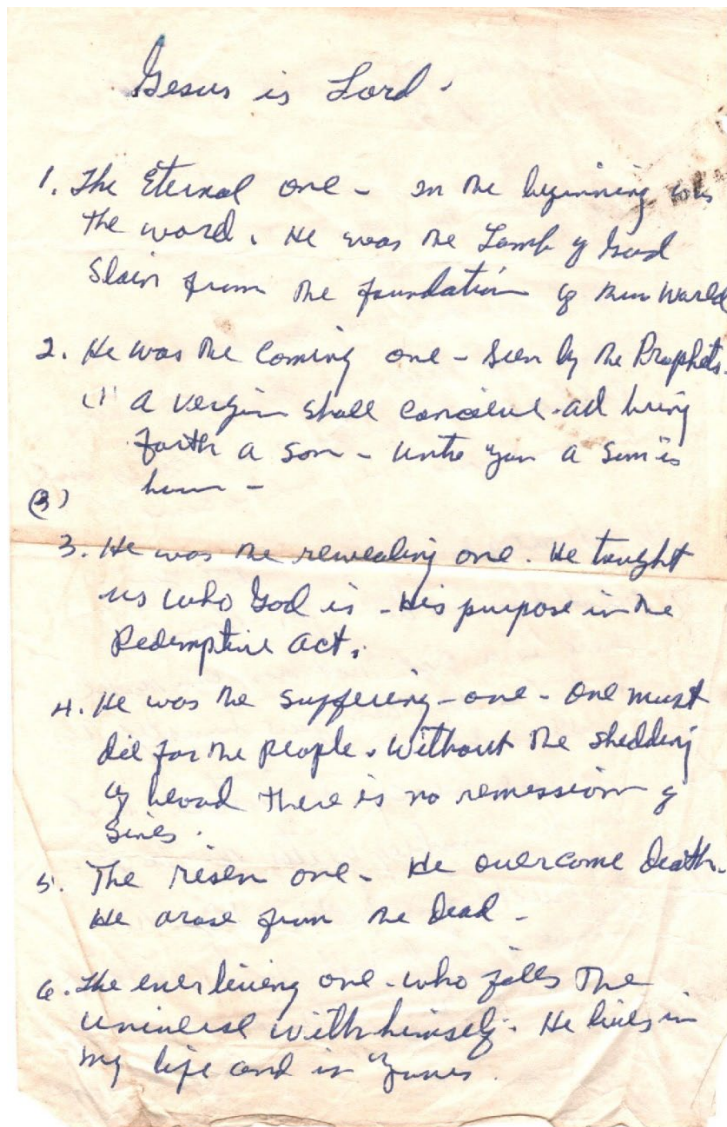 Jesus is Lord.
1. The Eternal one - in the beginning was
the word. He was the Lamb of God
Slain from the foundation of the World
2. He was the Coming one - Seen by the Prophets.
(1) A vergin shall conceive. ad bring
forth a son - unto you a Son is
born -
(3)
3. He was the revealing one. He taught
us who God is - His purpose in the
Redemptive Act.
4. He was the suffering - one - One must
die for the people. Without the shedding
of blood there is no remission of
Sines.
5. The risen one - He overcome Death.
He arose from the Dead -
6. The ever living one - who fills The
universe with himself. He lives in
my life and in Yours.